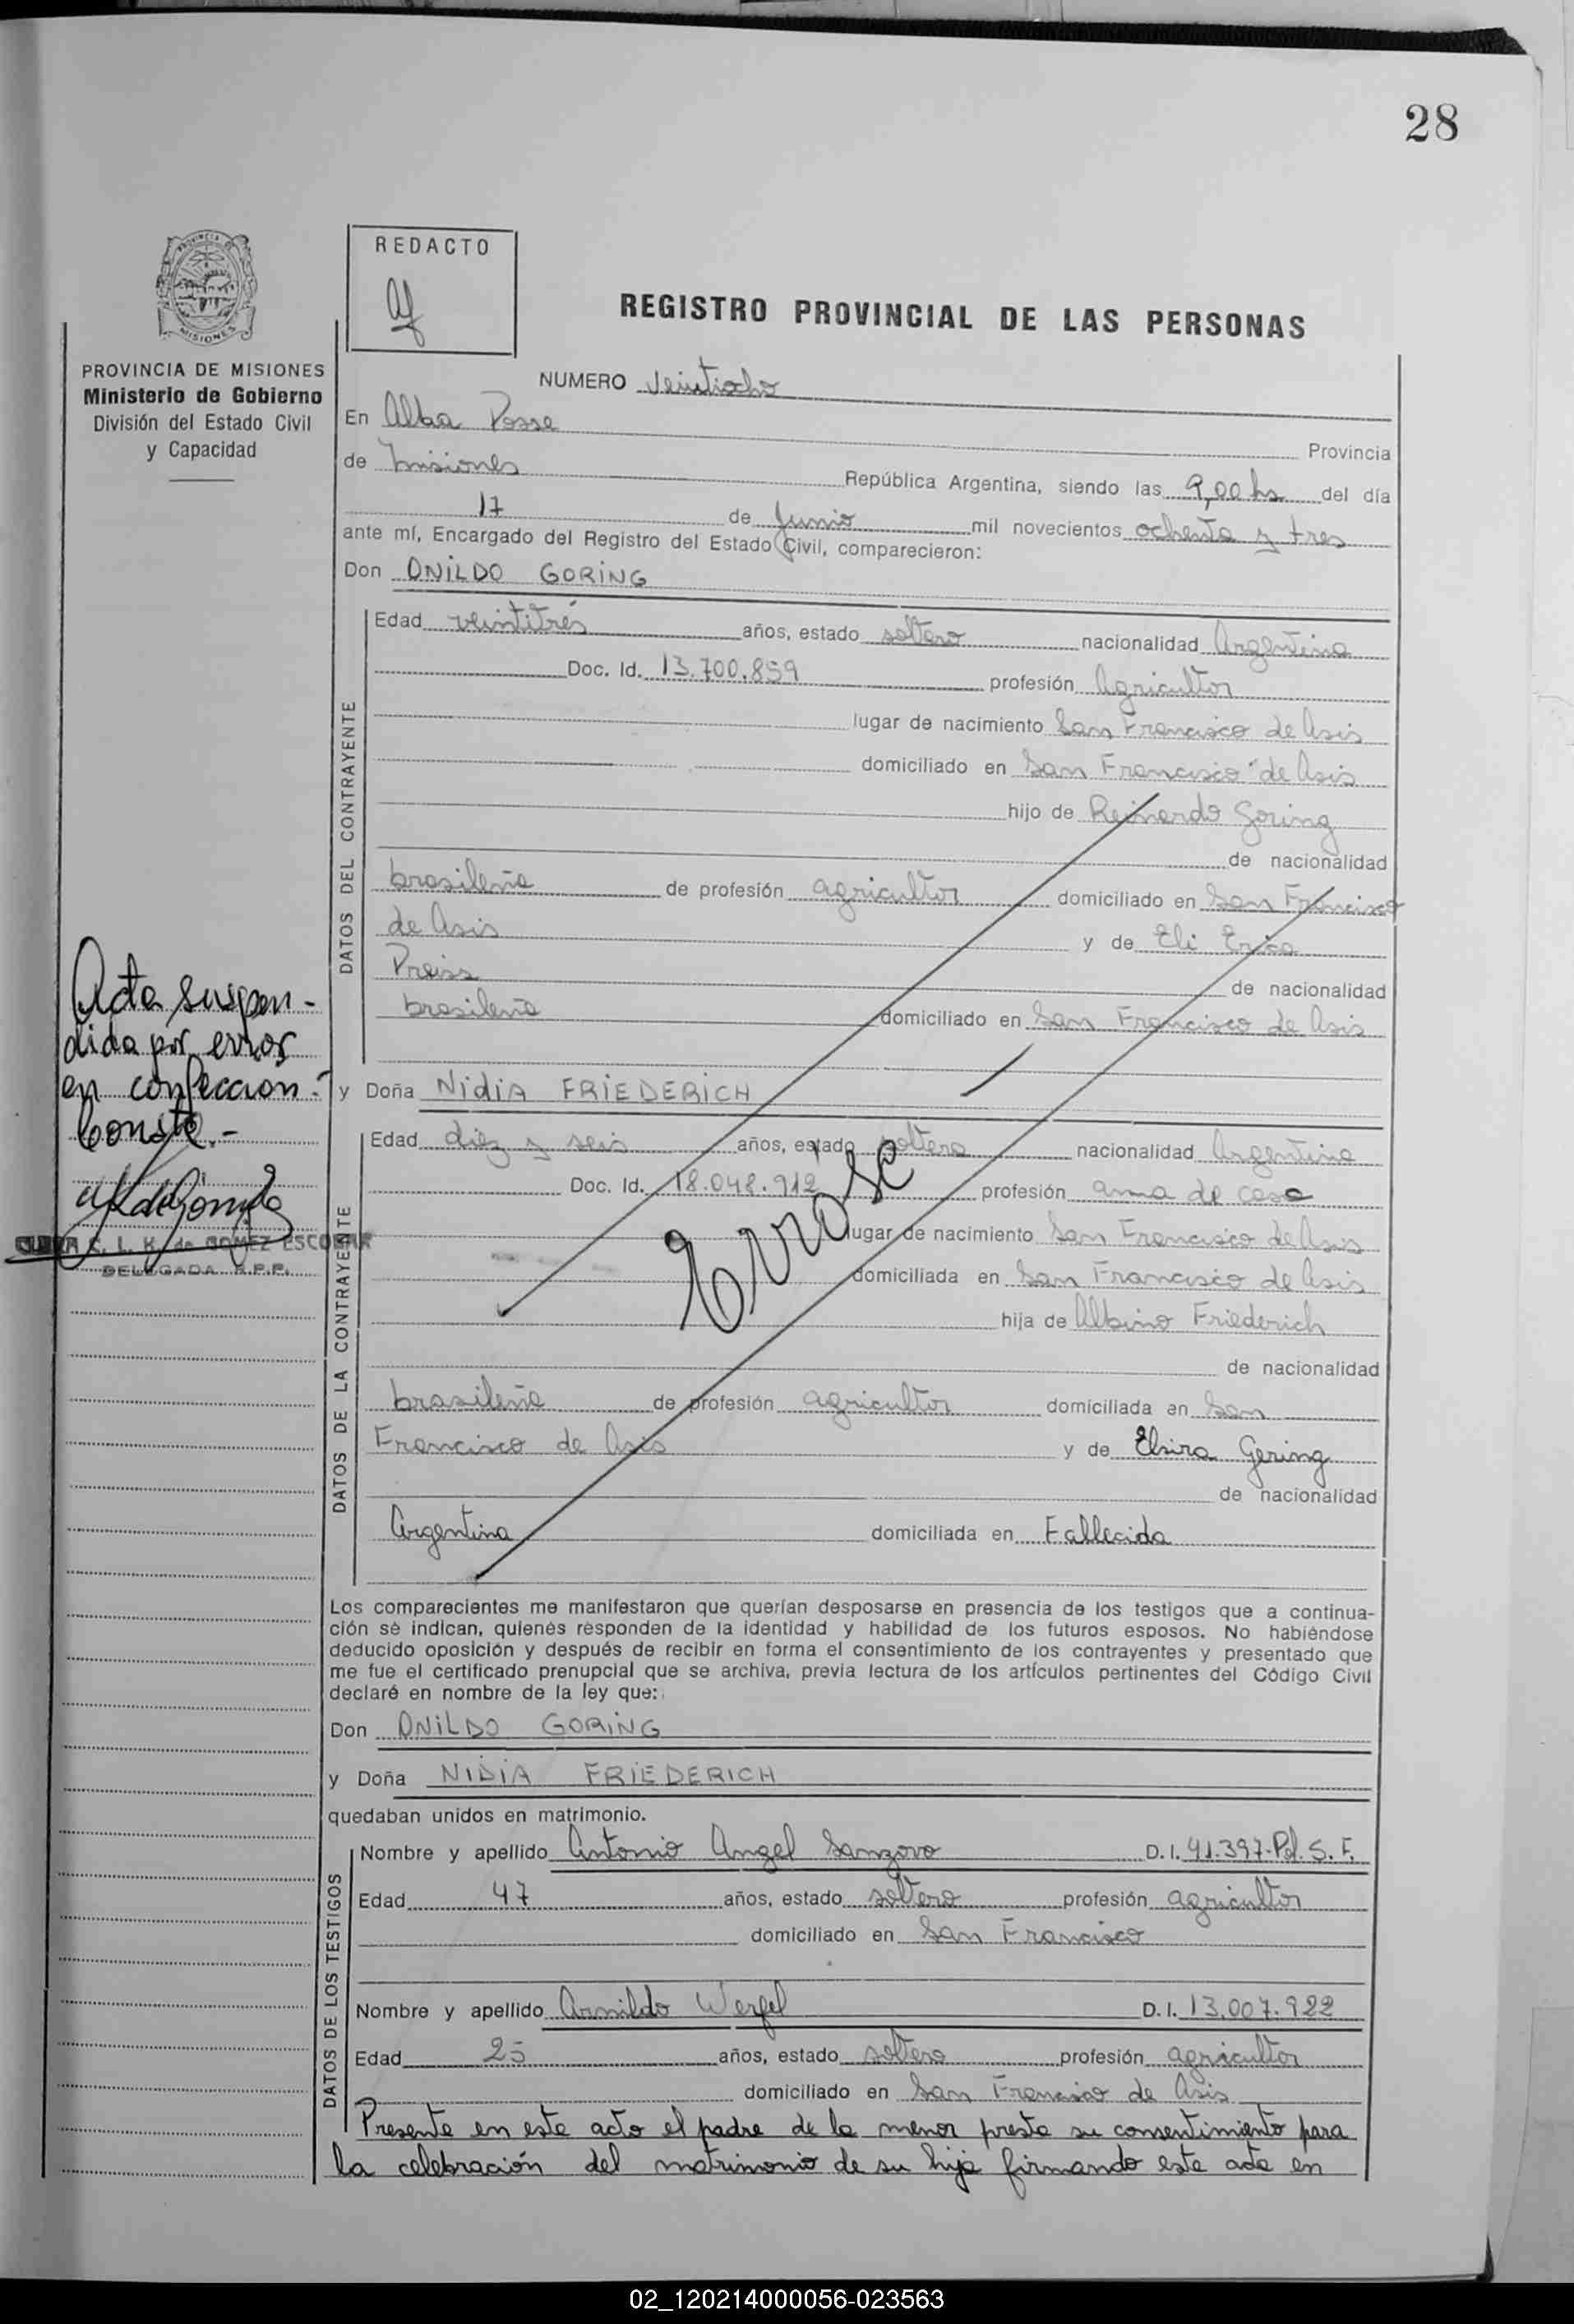 28
REDACTO
REGISTRO PROVINCIAL DE LAS PERSONAS
MISIONES
PROVINCIA DE MISIONES
Ministerio de Gobierno
División del Estado Civil
y Capacidad
NUMERO Veintiocho
En Alba Posse Provincia
de Misiones República Argentina, siendo las 9,00 hs del día
17 de Junio mil novecientos ochenta y tres
ante mí, Encargado del Registro del Estado Civil, comparecieron:
Don ONILDO GORING
DATOS DEL CONTRAYENTE
Edad veintitrés años, estado soltero nacionalidad Argentina
Doc. Id. 13.700.859 profesión Agricultor
lugar de nacimiento San Francisco de Asis
domiciliado en San Francisco de Asis
hijo de Reinardo Goring
de nacionalidad
brasileña de profesión agricultor domiciliado en San Francisco
de Asis y de Eli Erica
Preiss de nacionalidad
brasileña domiciliado en San Francisco de Asis
Acta suspen-
dida por error
en confeccion.-
Conste.-
S. L. K. de GOMEZ ESCOBAR
DELEGADA R.P.P.
y Doña Nidia FRIEDERICH
DATOS DE LA CONTRAYENTE
Edad diez y seis años, estado soltera nacionalidad Argentina
Doc. Id. 18.048.912 profesión ama de casa
Errose
lugar de nacimiento San Francisco de Asis
domiciliada en San Francisco de Asis
hija de Albino Friederich
de nacionalidad
brasileña de profesión agricultor domiciliada en San
Francisco de Asis y de Elsira Gering
de nacionalidad
Argentina domiciliada en Fallecida
Los comparecientes me manifestaron que querían desposarse en presencia de los testigos que a continua-
ción se indican, quienes responden de la identidad y habilidad de los futuros esposos. No habiéndose
deducido oposición y después de recibir en forma el consentimiento de los contrayentes y presentado que
me fue el certificado prenupcial que se archiva, previa lectura de los artículos pertinentes del Código Civil
declaré en nombre de la ley que:
Don ONILDO GORING
y Doña NIDIA FRIEDERICH
quedaban unidos en matrimonio.
DATOS DE LOS TESTIGOS
Nombre y apellido Antonio Angel Sanzovo D. I. 41.397-Pol. S. F.
Edad 47 años, estado soltero profesión agricultor
domiciliado en San Francisco
Nombre y apellido Arnildo Werfel D. I. 13.007.922
Edad 25 años, estado soltero profesión agricultor
domiciliado en San Francisco de Asis
Presente en este acto el padre de la menor presta su consentimiento para
la celebración del matrimonio de su hija firmando este acta en
02_120214000056-023563